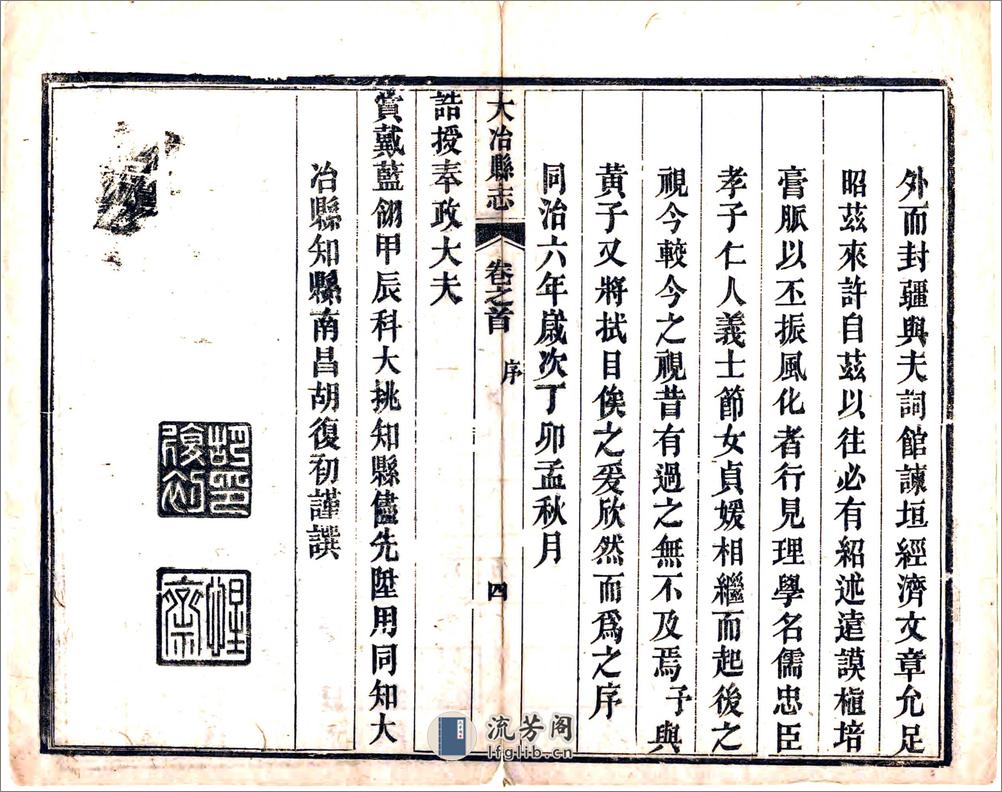 外而封疆與夫詞館諫垣經濟文章允足
昭茲來許自茲以往必有紹述遠謨植培
膏脈以丕振風化者行見理學名儒忠臣
孝子仁人義士節女貞媛相繼而起後之
視今較今之視昔有過之無不及焉予與
黃子又將拭目俟之爰欣然而爲之序
同治六年歲次丁卯孟秋月
大冶縣志 卷之首 序 四
誥授奉政大夫
賞戴藍翎甲辰科大挑知縣儘先陞用同知大
冶縣知縣南昌胡復初謹譔
胡印復初
惺齋
流芳阁
lfglib.cn